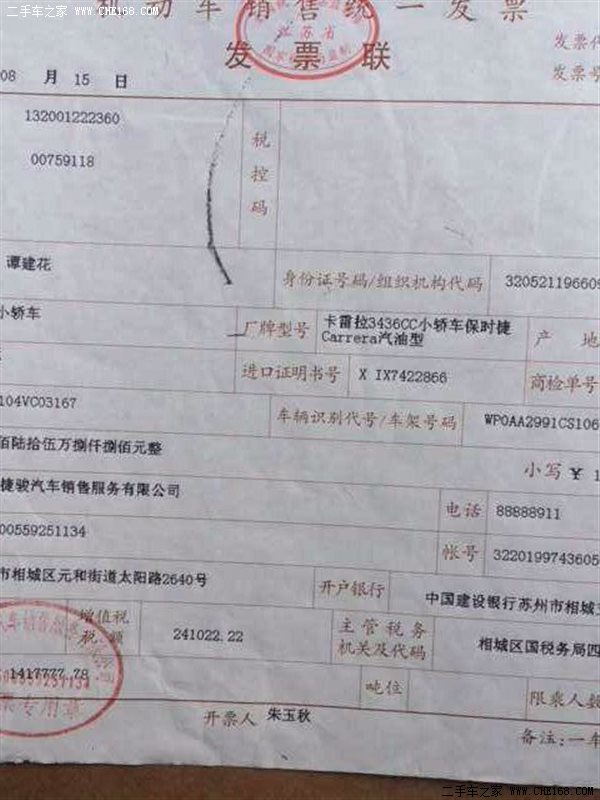 二手车之家 WWW.CHE168.COM
二手车之家 WWW.CHE168.COM
动车销售统一发票
江苏省
发票联
发票代
发票号
08 月 15 日
132001222360
00759118
税控码
谭建花
身份证号码/组织机构代码
320521196609
小轿车
厂牌型号
卡雷拉3436CC小轿车保时捷
Carrera汽油型
产 地
进口证明书号
X IX7422866
商检单号
104VC03167
车辆识别代号/车架号码
WP0AA2991CS106
佰陆拾伍万捌仟捌佰元整
小写 ¥ 1
捷骏汽车销售服务有限公司
电话
88888911
00559251134
帐号
3220199743605
市相城区元和街道太阳路2640号
开户银行
中国建设银行苏州市相城
增值税
税 额
241022.22
主管税务
机关及代码
相城区国税务局四
1417777.78
吨位
限乘人数
专用章
开票人 朱玉秋
备注:一车
二手车之家 WWW.CHE168.COM
二手车之家 WWW.CHE168.COM